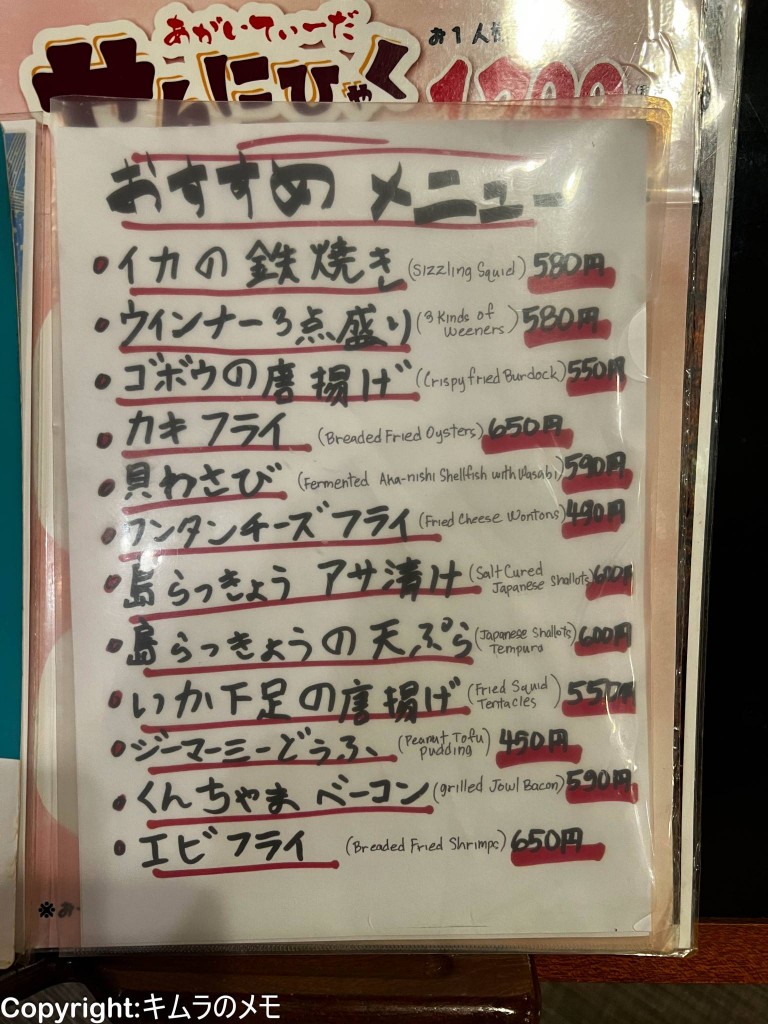 あがいてぃーだ
お1人
おすすめ メニュー
・イカの鉄焼き (Sizzling Squid) 580円
・ウインナー3点盛り (3 Kinds of Weeners) 580円
・ゴボウの唐揚げ (Crispy fried Burdock) 550円
・カキフライ (Breaded Fried Oysters) 650円
・貝わさび (Fermented Aka-nishi Shellfish with Wasabi) 590円
・ワンタンチーズフライ (Fried Cheese Wontons) 490円
・島らっきょう アサ漬け (Salt Cured Japanese Shallots) 600円
・島らっきょうの天ぷら (Japanese Shallots Tempura) 600円
・いか下足の唐揚げ (Fried Squid Tentacles) 550円
・ジーマーミーどうふ (Peanut Tofu pudding) 450円
・くんちゃまベーコン (grilled Jowl Bacon) 590円
・エビフライ (Breaded Fried Shrimps) 650円
※お
Copyright:キムラのメモ